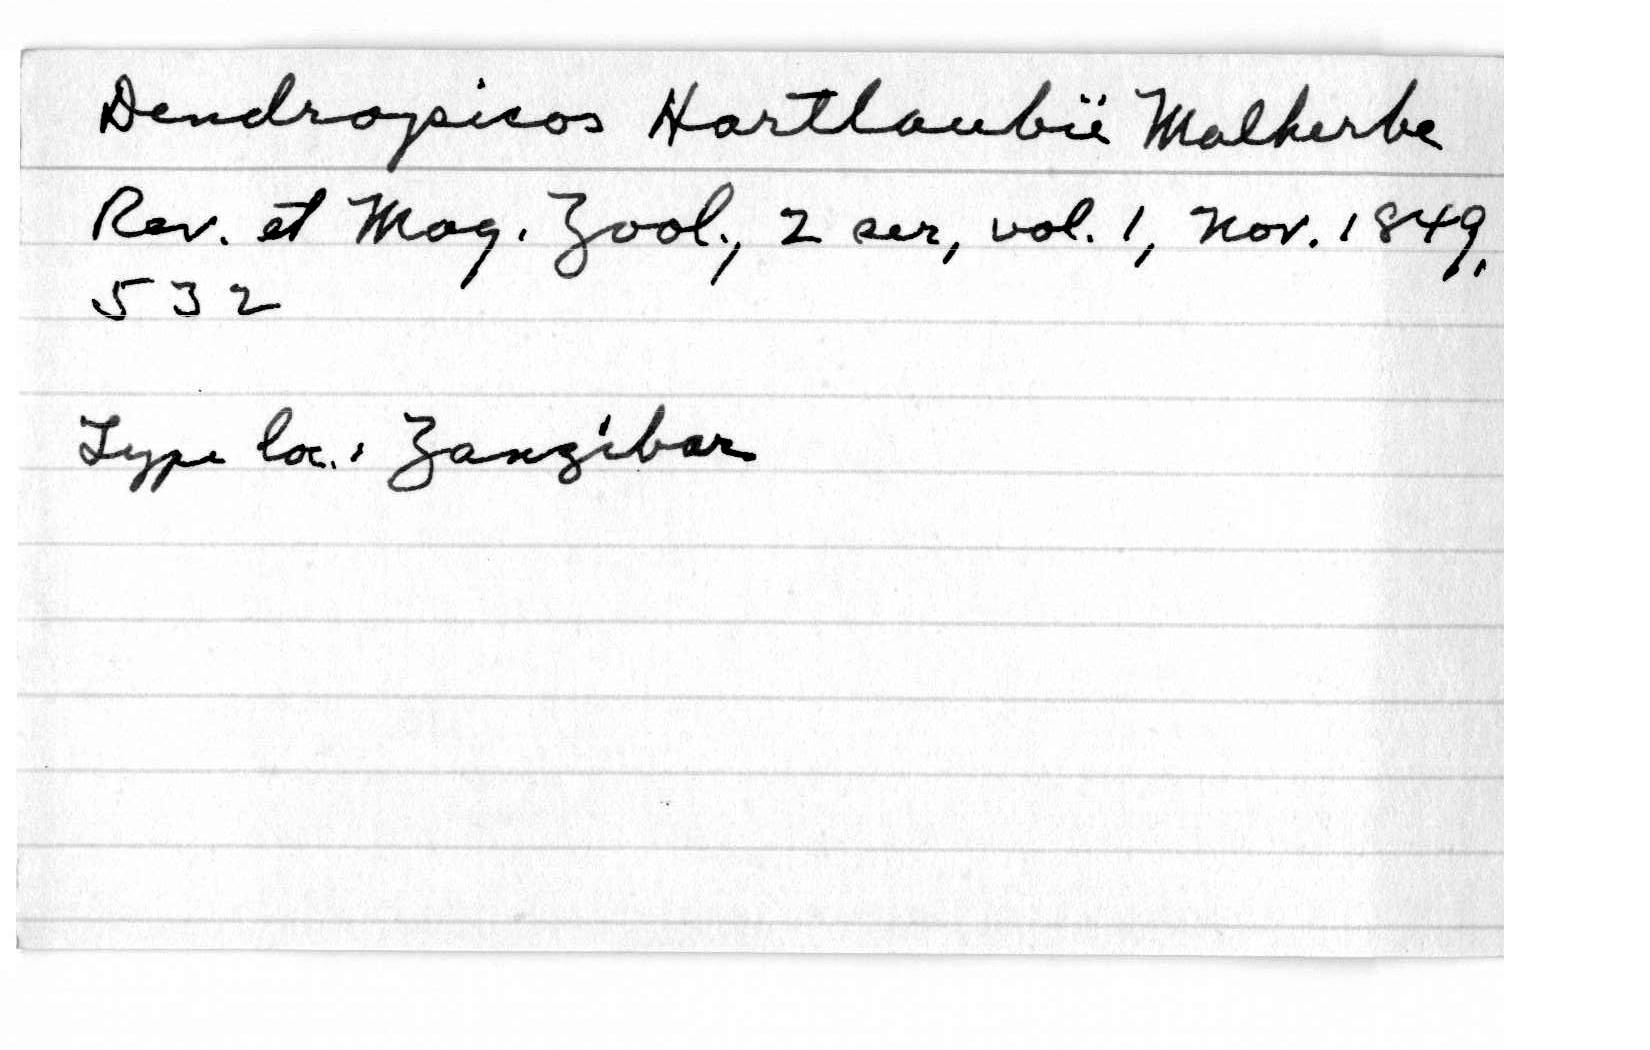 Dendropicos Hartlaubii Malherbe
Rev. et Mag. Zool., 2 ser, vol. 1, Nov. 1849,
532
Type loc.: Zanzibar